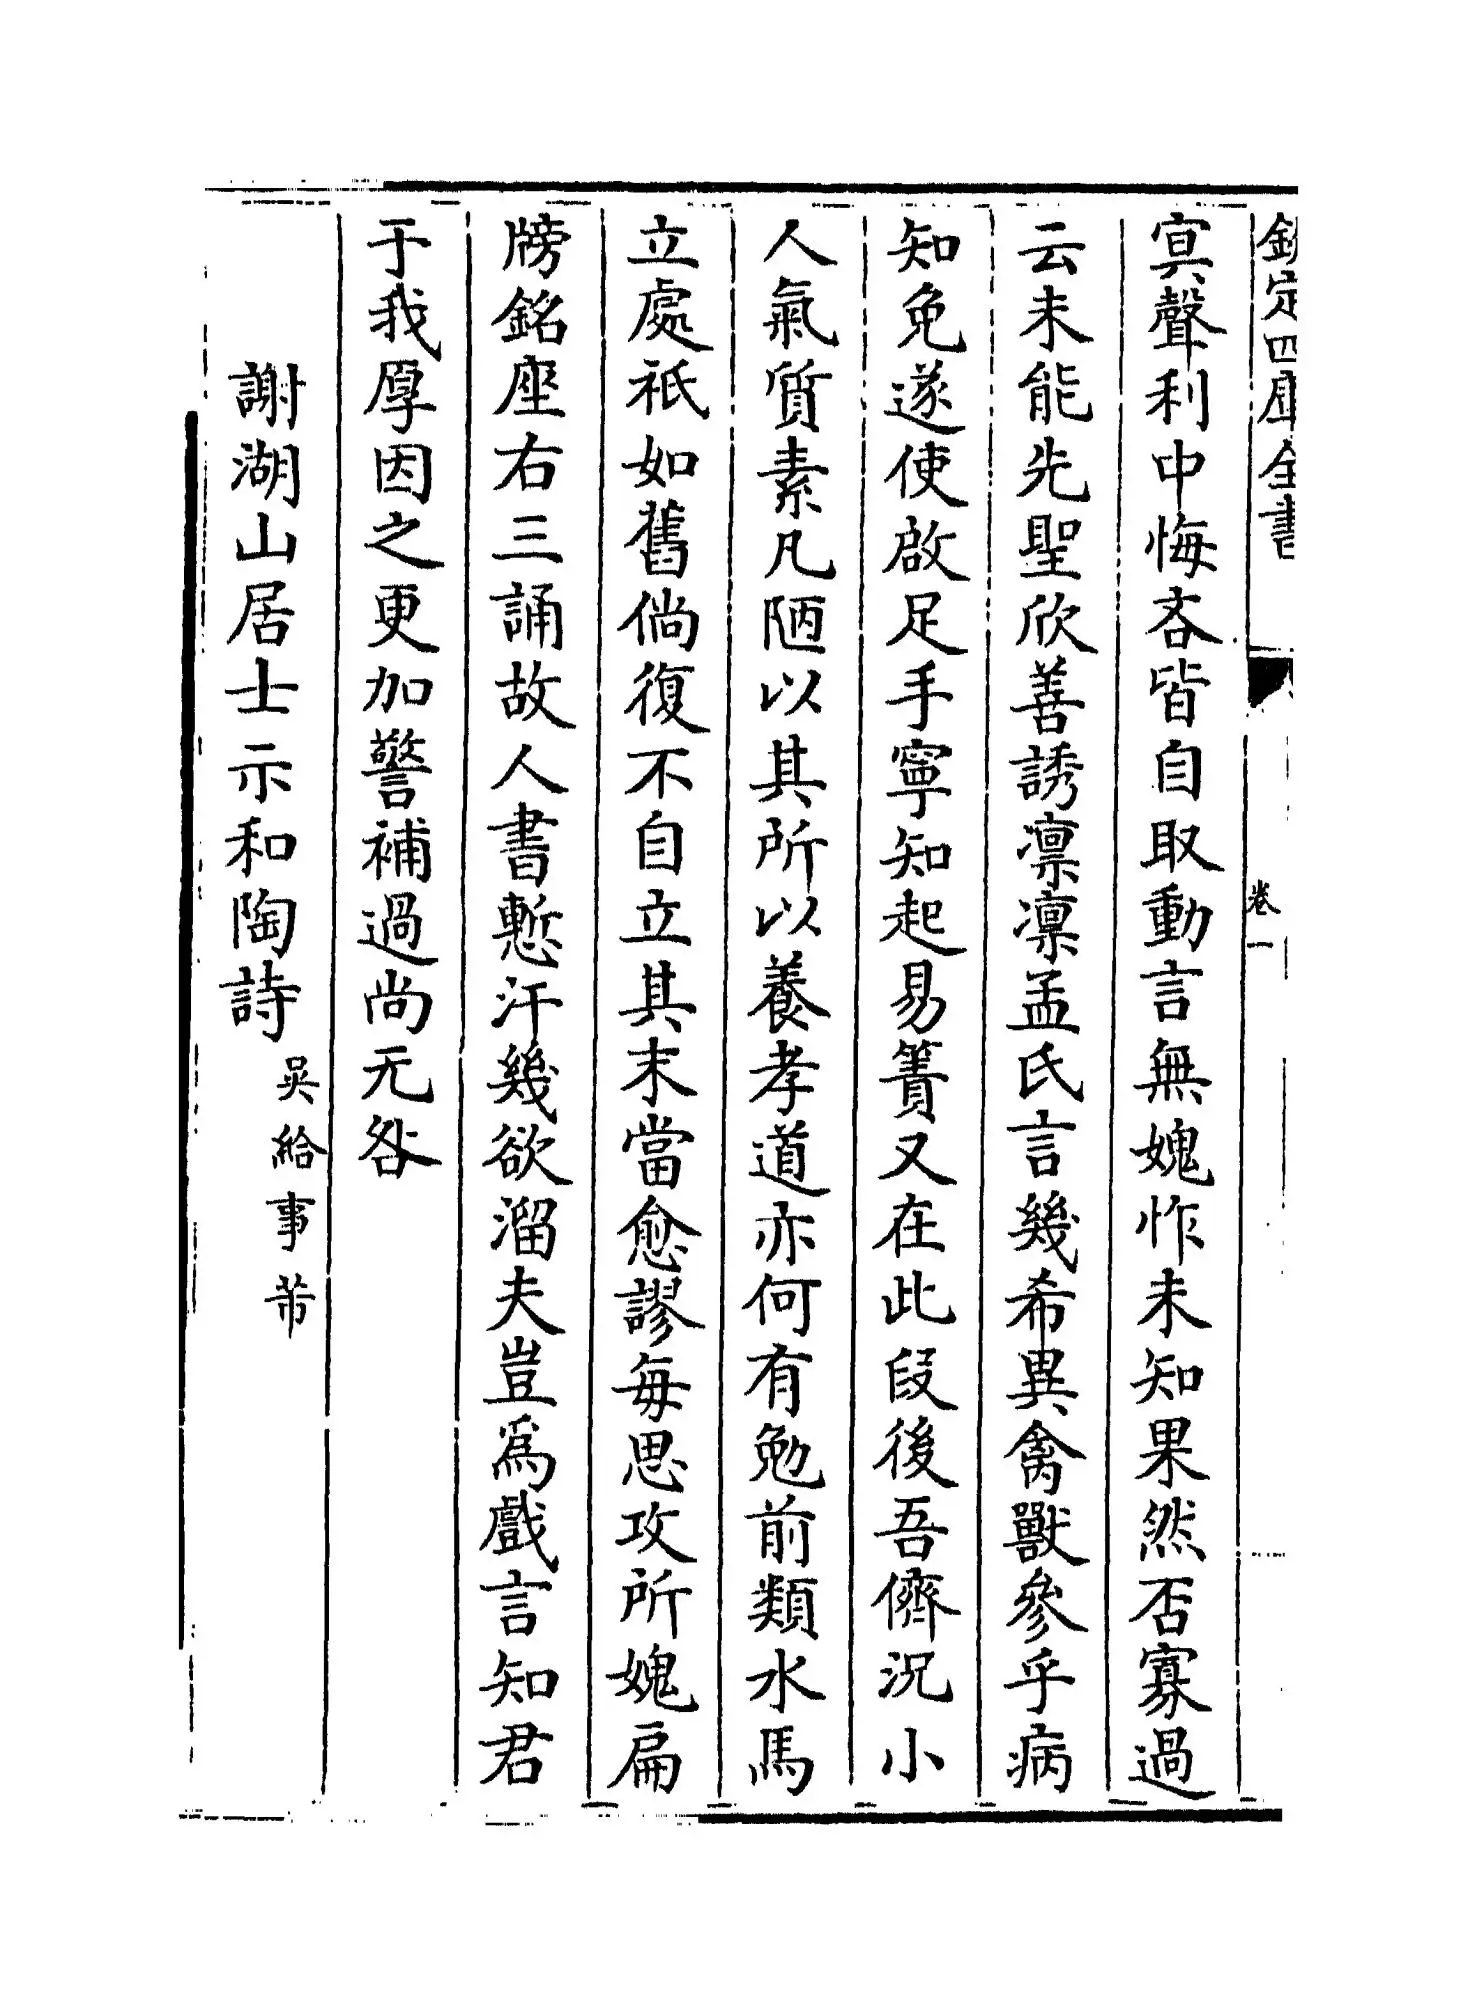 欽定四庫全書
卷一
寘聲利中悔吝皆自取動言無媿怍未知果然否寡過
云未能先聖欣善誘凛凛孟氏言幾希異禽獸參乎病
知免遂使啟足手寧知起易簀又在此段後吾儕況小
人氣質素凡陋以其所以養孝道亦何有勉前類水馬
立處祇如舊倘復不自立其末當愈謬每思攻所媿扁
牓銘座右三誦故人書慙汗幾欲溜夫豈為戲言知君
于我厚因之更加警補過尚无咎
謝湖山居士示和陶詩吳給事芾